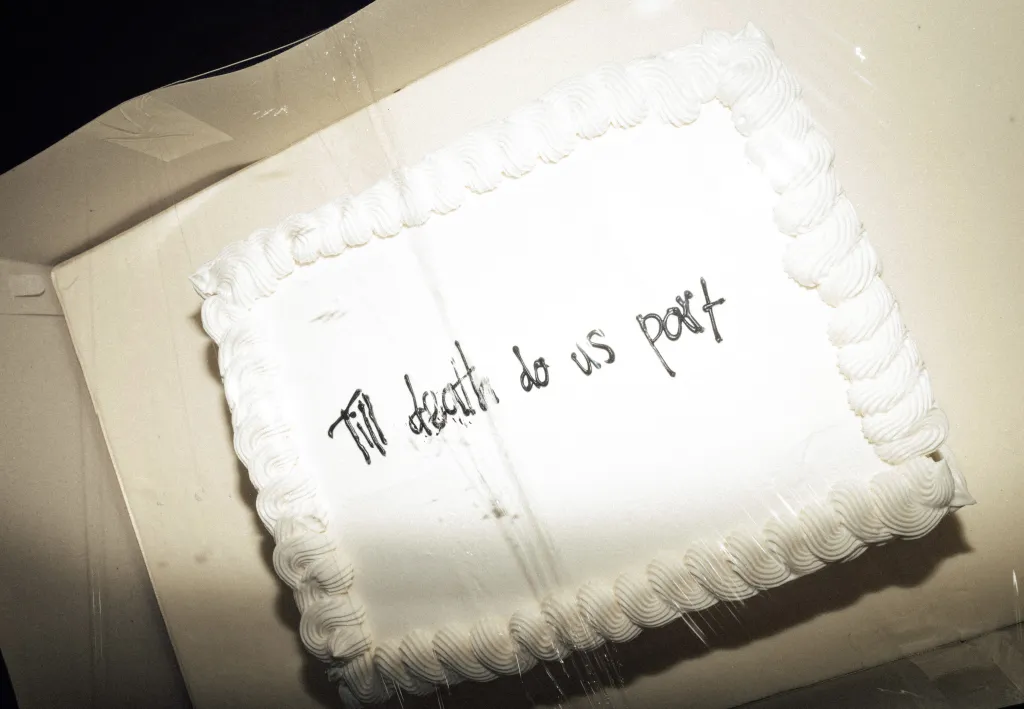 Till death do us part